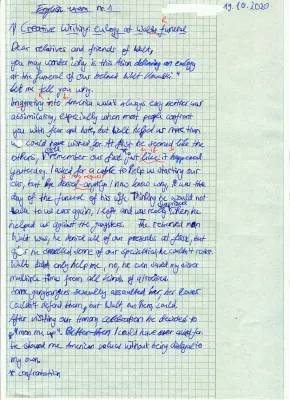 English exam nr. 1 19.10.2020
1) Creative writing eulogy at Walt's funeral
Dear relatives and friends of Walt,
you may wonder why is this Asian delivering an eulogy
at the funeral of our beloved Walt Kowalski.
Let me tell you why.
Immigrating into America wasn't always easy neither was
assimilating, especially when most people confront
you with fear and hate, but Walt helped us more than
we could have wished for. At first he seemed like the
others, I remember our first just like it happened
yesterday. I asked for a cable to help us starting our
car, but he
day of the funeral of his wife. Thinking he would not
talk to us ever again, I left and was really when he
helped us against the gangsters. The reserved man
Walt was, he denied all of our presents at first, but
he some of our specialities he couldn't resist.
Walt not only help me, no, he even saved my sister
multiple times from all kinds of attackers.
gangsters sexually assaulted her, her lover
couldn't defend them, but Walt, on his own, could.
After visiting our Hmong celebration he decided to
"man me up". Better than I could have ever asked for
he showed me American values without being disloyal to
my own.
* confrontation